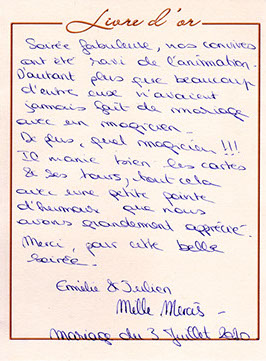 Livre d'or
Soirée fabuleuse, nos convives
ont été ravi de l'animation.
D'autant plus que beaucoup
d'entre eux n'avaient
jamais fait de mariage
avec un magicien.
De plus, quel magicien !!!
Il manie bien les cartes
& ses tours, tout cela
avec une petite pointe
d'humour que nous
avons grandement apprécié.
Merci, pour cette belle
soirée.
Emilie & Julien
Melle
Mariage du 3 Juillet 2010